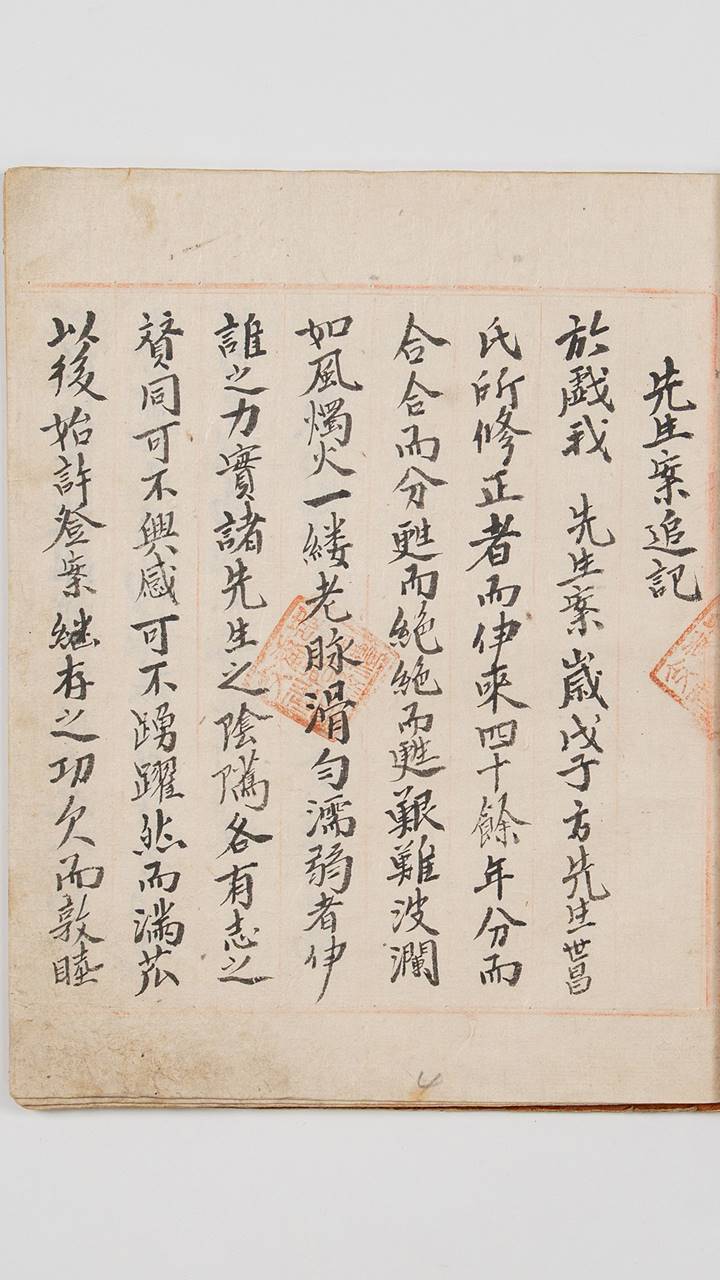 先生案追記
於戱我 先生案歲戊子方先生世昌
氏所修正者而伊來四十餘年分而
合合而分甦而絶絶而甦艱難波瀾
如風燭火一縷老脉滑勻濡弱者伊
誰之力實諸先生之陰隲各有志之
賛同可不興感可不踴躍然而滿苽
以後始許登案繼存之功欠而敦睦